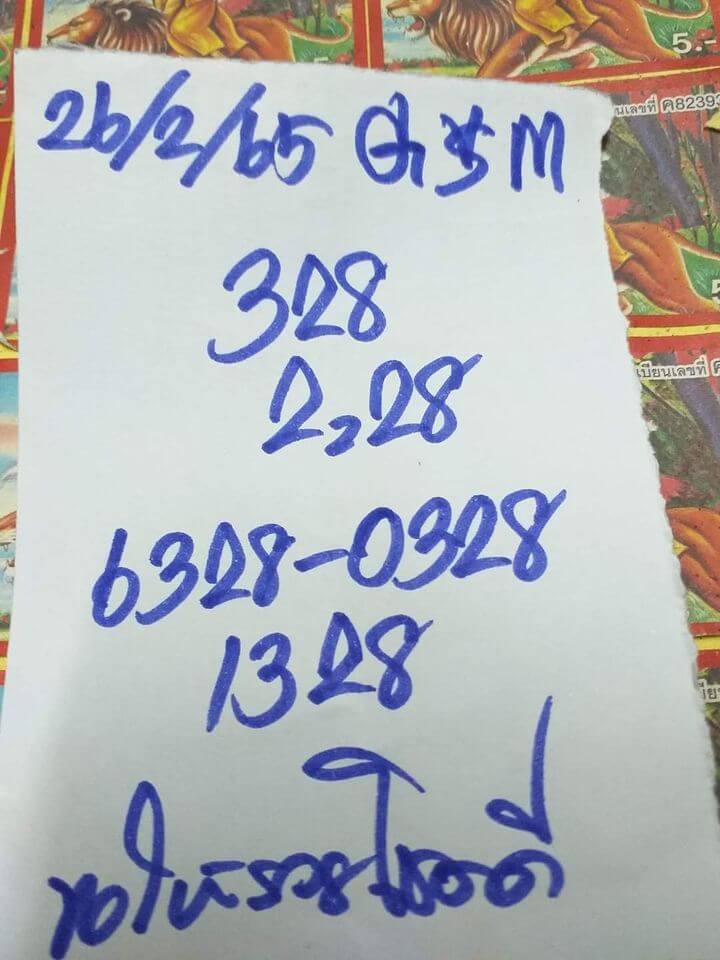 5.-
ยนเลขที่ ค82393
26/2/65
328
2,28
6328-0328
1328
เบียนเลขที่ ค
ขอให้รวยโชคดี